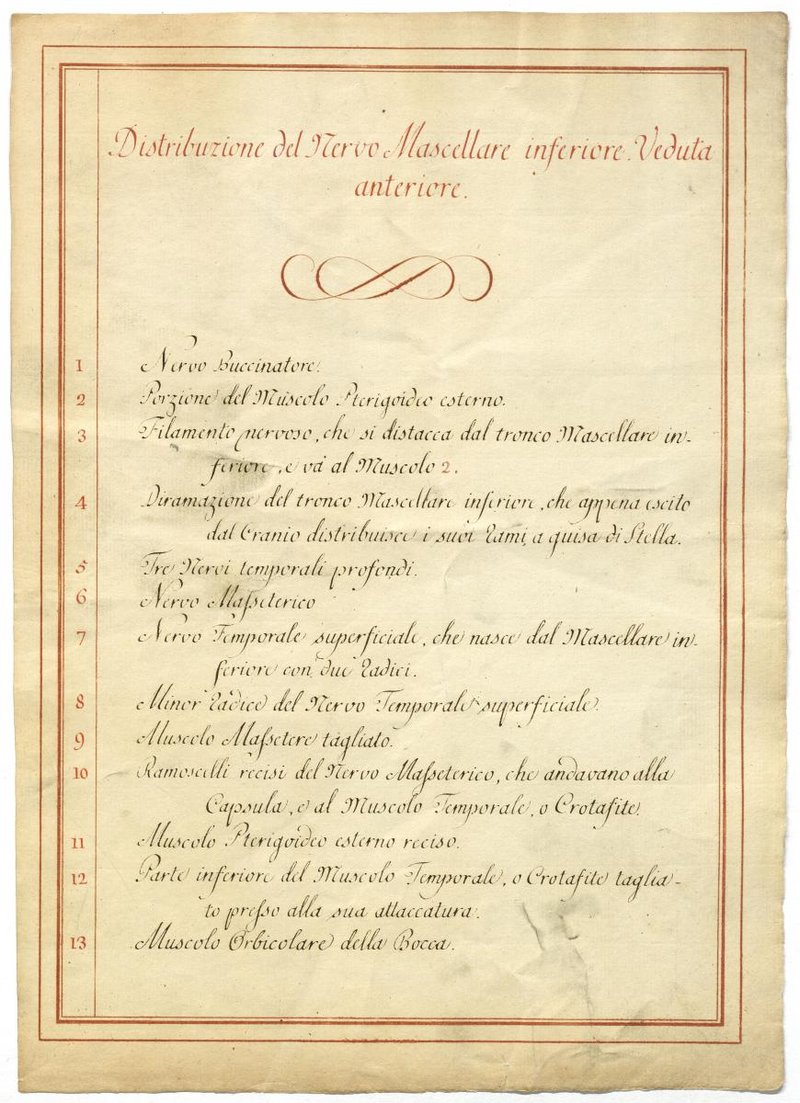 Distribuzione del Nervo Mascellare inferiore. Veduta
anteriore.
1 Nervo Buccinatore.
2 Porzione del Muscolo Pterigoideo esterno.
3 Filamento nervoso, che si distacca dal tronco Mascellare in-
feriore, e và al Muscolo 2.
4 Diramazione del tronco Mascellare inferiore, che appena escito
dal Cranio distribuisce i suoi rami, a guisa di Stella.
5 Tre Nervi temporali profondi.
6 Nervo Maſseterico
7 Nervo Temporale superficiale, che nasce dal Mascellare in-
feriore con due radici.
8 Minor radice del Nervo Temporale superficiale.
9 Muscolo Maſsetere tagliato.
10 Ramoscelli recisi del Nervo Maſseterico, che andavano alla
Capsula, e al Muscolo Temporale, o Crotafite.
11 Muscolo Pterigoideo esterno reciso.
12 Parte inferiore del Muscolo Temporale, o Crotafite taglia-
to preſso alla sua attaccatura.
13 Muscolo Orbicolare della Bocca.